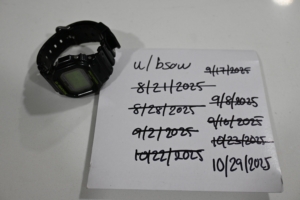 u/bsow
8/21/2025
8/28/2025
9/2/2025
10/22/2025
9/17/2025
9/8/2025
9/10/2025
10/23/2025
10/29/2025